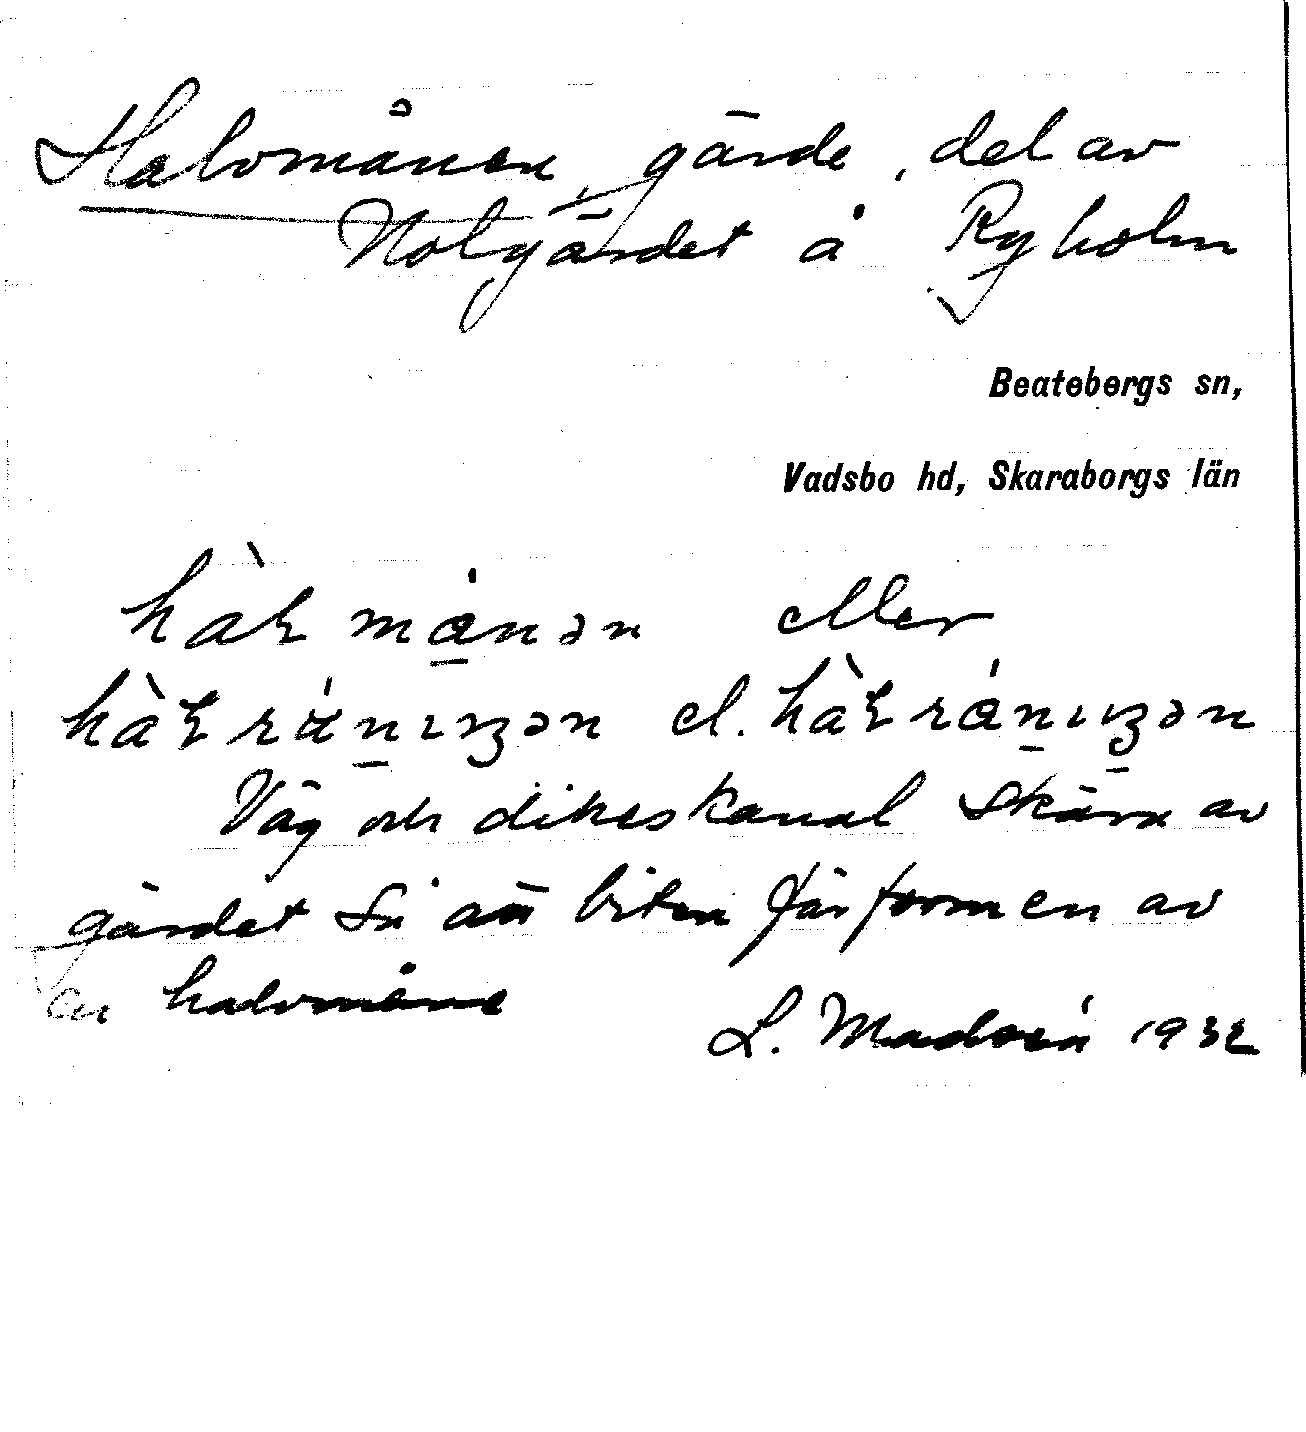 Halvmånen, gärde, del av
Nolgärdet å Ryholm
Beatebergs sn,
Vadsbo hd, Skaraborgs län
eller
el.
Väg och dikeskanal skära av
gärdet så att biten får formen av
en halvmåne
L. Modin 1932